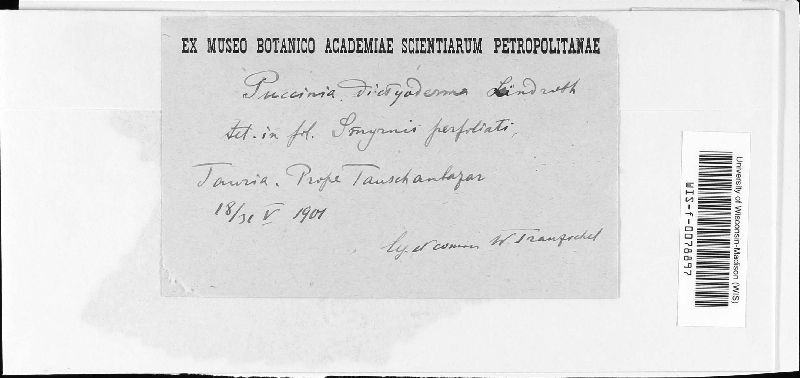 EX MUSEO BOTANICO ACADEMIAE SCIENTIARUM PETROPOLITANAE
Puccinia dictyoderma Lindroth
tel. in fol. Smyrnii perfoliati,
Tauria. Prope Tauschanbazar
18/31 V 1901
leg et comm W Tranzschel
University of Wisconsin-Madison (WIS)
WIS-f-0078897